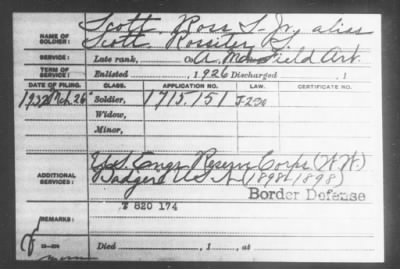 NAME OF SOLDIER: Scott, Ross S. Jr., alias
Scott Rossiter B.
SERVICE: Late rank, Co. A. Mo. Field Art.
TERM OF SERVICE: Enlisted , 1926 Discharged , 1
DATE OF FILING. CLASS. APPLICATION NO. LAW. CERTIFICATE NO.
1932 Mch. 26 Soldier, 1715,151 J-230
Widow,
Minor,
ADDITIONAL SERVICES: U.S. Engr Reserve Corps (W.W.)
Badger U.S.N. (1898-1898)
Border Defense
T 820 174
REMARKS:
Died , 1 , at